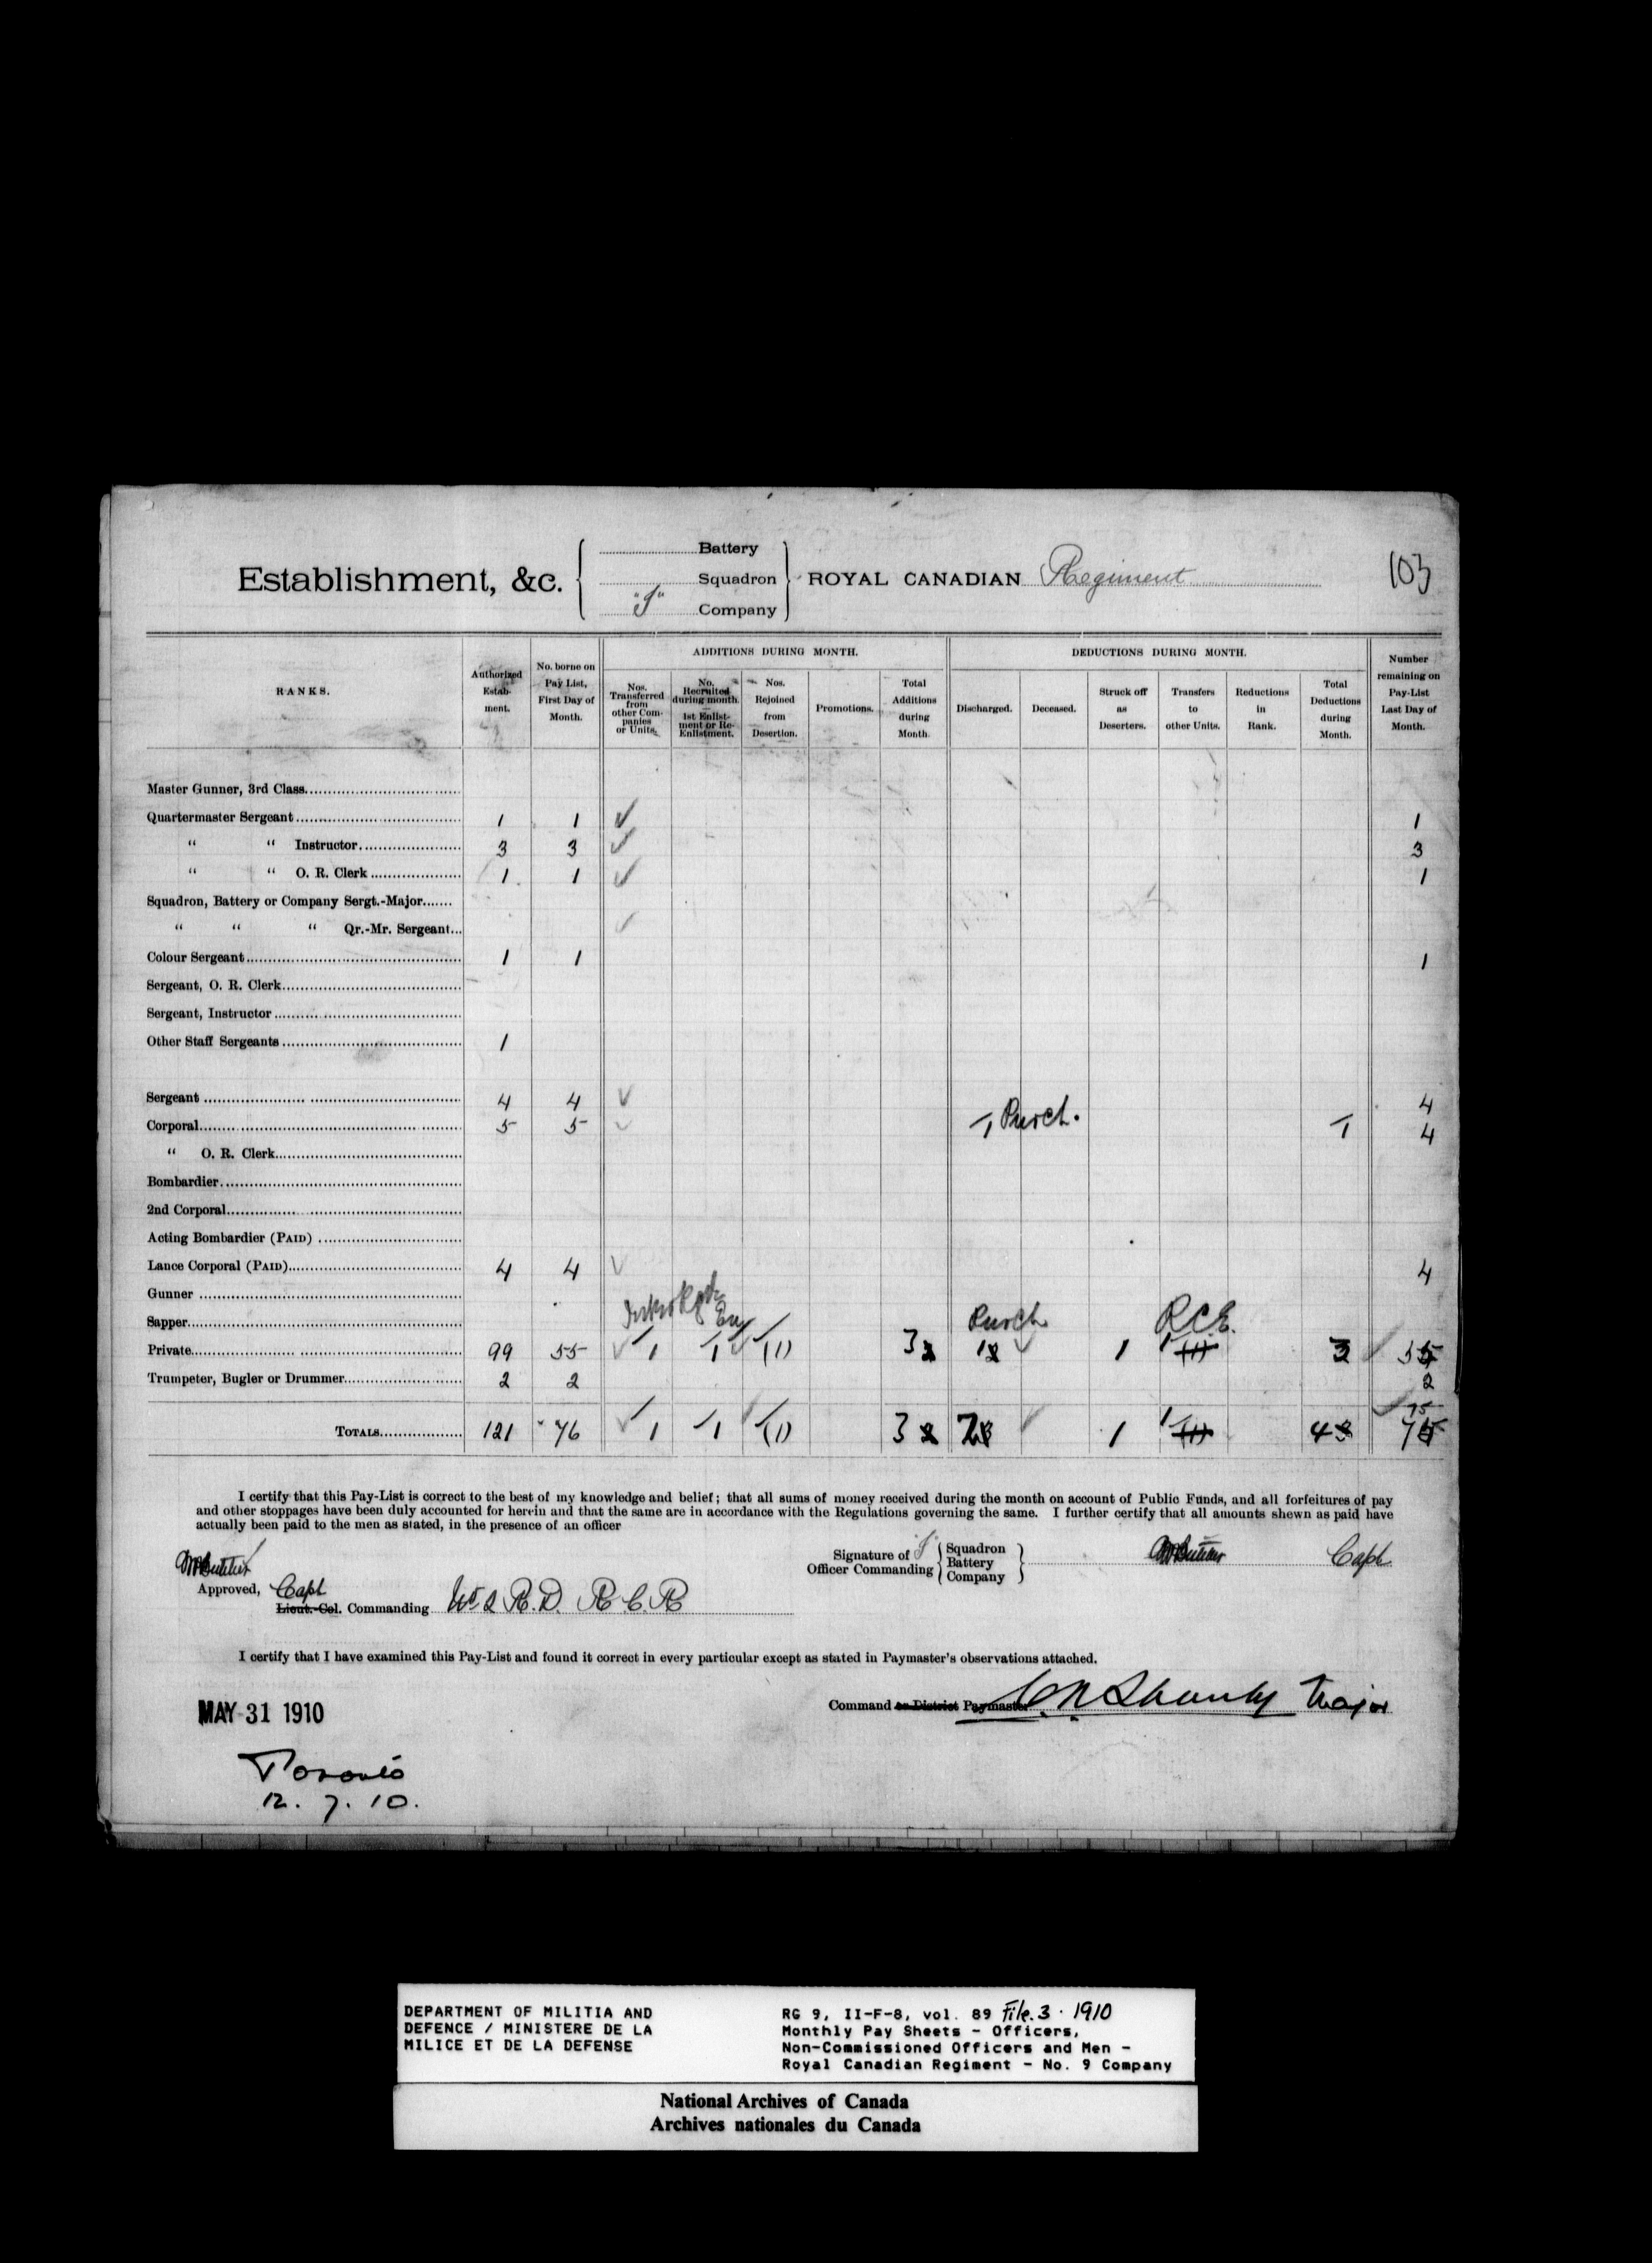 Establishment, &c.
Battery
Squadron
Company
ROYAL CANADIAN Regiment
103
RANKS.
Authorized Establishment.
No. borne on Pay List, First Day of Month.
ADDITIONS DURING MONTH.
Nos. Transferred from other Companies or Units.
No. Recruited during month.
1st Enlistment or Re-Enlistment.
Nos. Rejoined from Desertion.
Promotions.
Total Additions during Month.
DEDUCTIONS DURING MONTH.
Discharged.
Deceased.
Struck off as Deserters.
Transfers to other Units.
Reductions in Rank.
Total Deductions during Month.
Number remaining on Pay-List Last Day of Month.
Master Gunner, 3rd Class
Quartermaster Sergeant 1 1 1
“ “ Instructor 3 3 3
“ “ O. R. Clerk 1 1 1
Squadron, Battery or Company Sergt.-Major
“ “ “ Qr.-Mr. Sergeant
Colour Sergeant 1 1 1
Sergeant, O. R. Clerk
Sergeant, Instructor
Other Staff Sergeants 1
Sergeant 4 4 4
Corporal 5 5 1 Purch. 1 4
“ O. R. Clerk
Bombardier
2nd Corporal
Acting Bombardier (PAID)
Lance Corporal (PAID) 4 4 4
Gunner
Sapper
Purch R.C.E.
Private 99 55 1 1 (1) 3 1 1 1 3 55
Trumpeter, Bugler or Drummer 2 2 2
75
TOTALS 121 76 1 1 (1) 3 2 1 1 4 75
I certify that this Pay-List is correct to the best of my knowledge and belief; that all sums of money received during the month on account of Public Funds, and all forfeitures of pay
and other stoppages have been duly accounted for herein and that the same are in accordance with the Regulations governing the same. I further certify that all amounts shewn as paid have
actually been paid to the men as stated, in the presence of an officer
Signature of Officer Commanding Squadron Battery Company Capt.
Approved, Capt
Lieut.-Col. Commanding No 2 R.D. R.C.R
I certify that I have examined this Pay-List and found it correct in every particular except as stated in Paymaster's observations attached.
Command or District Paymaster Major
MAY 31 1910
Toronto
12. 7. 10.
DEPARTMENT OF MILITIA AND
DEFENCE / MINISTERE DE LA
MILICE ET DE LA DEFENSE
RG 9, II-F-8, vol. 89 File. 3 · 1910
Monthly Pay Sheets - Officers,
Non-Commissioned Officers and Men -
Royal Canadian Regiment - No. 9 Company
National Archives of Canada
Archives nationales du Canada